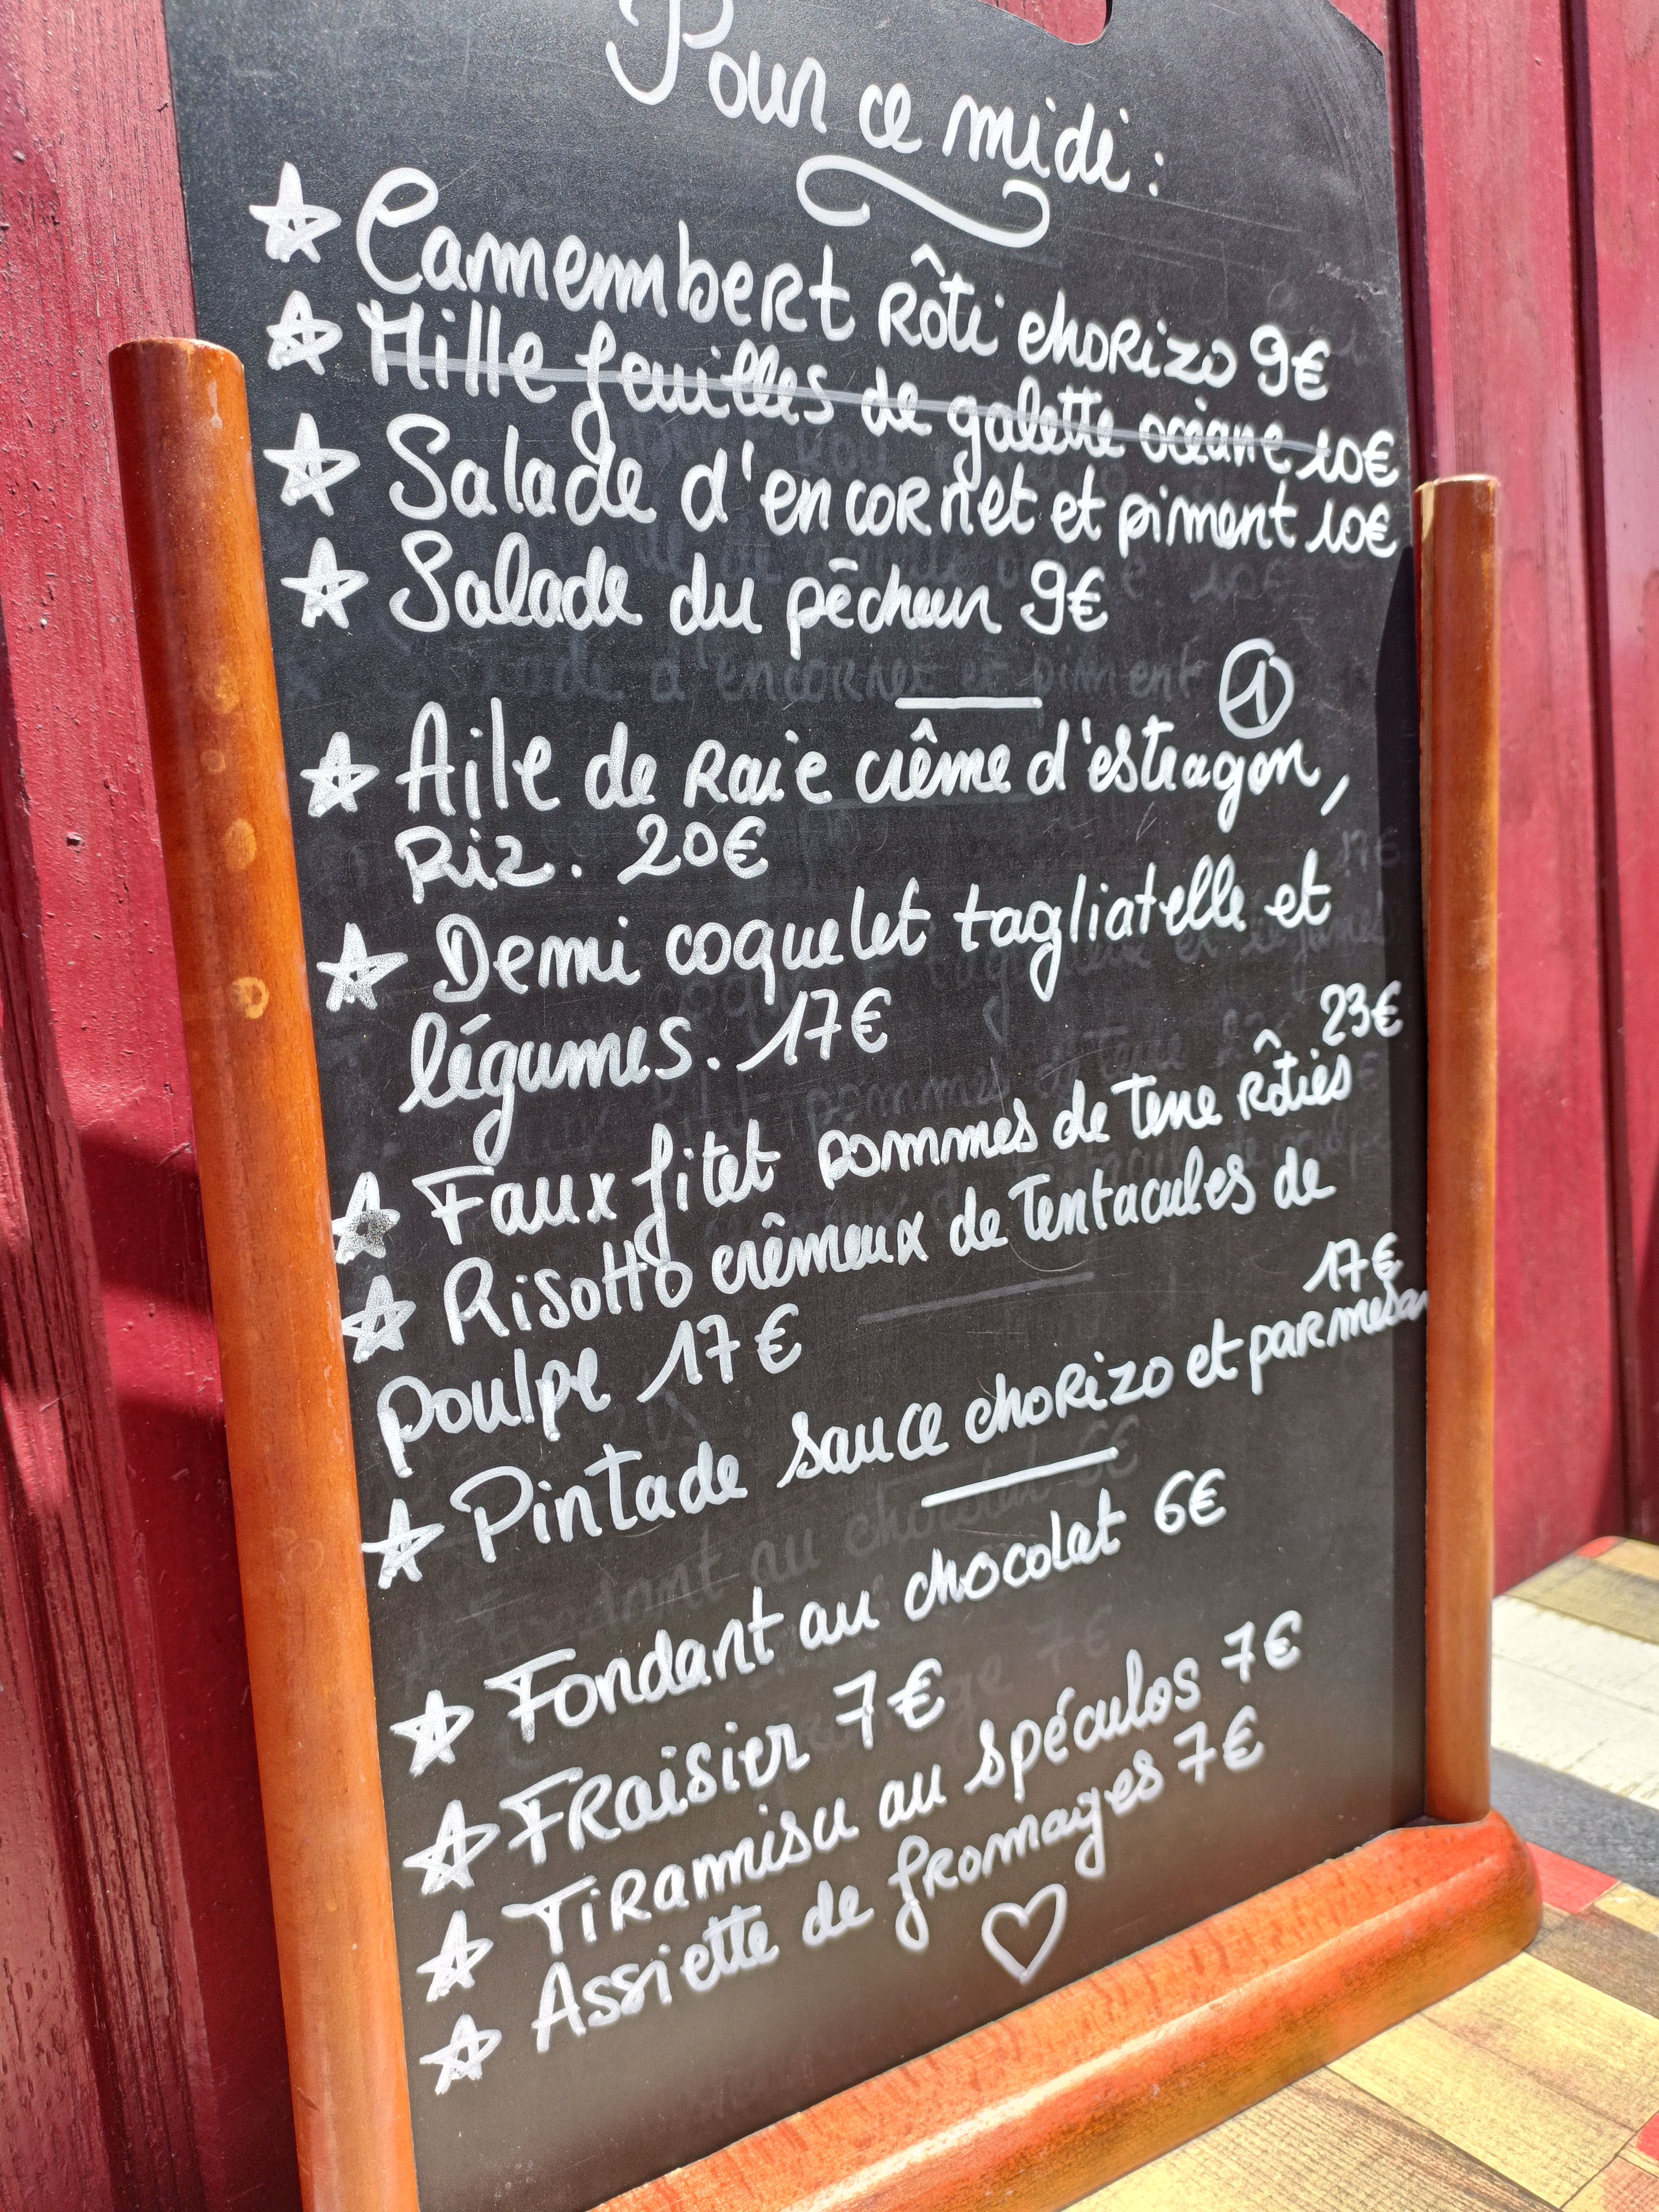 Pour ce midi :
Camembert rôti chorizo 9€
Mille feuilles de galette océane 10€
Salade d'encornet et piment 10€
Salade du pêcheur 9€
1
Aile de Raie crême d'estragon,
Riz. 20€
Demi coquelet tagliatelle et
légumes. 17€
23€
Faux filet pommes de terre rôties
Risotto crêmeux de Tentacules de
poulpe 17€
17€
Pintade sauce chorizo et parmesan
Fondant au chocolat 6€
Fraisier 7€
Tiramisu au spéculos 7€
Assiette de fromages 7€